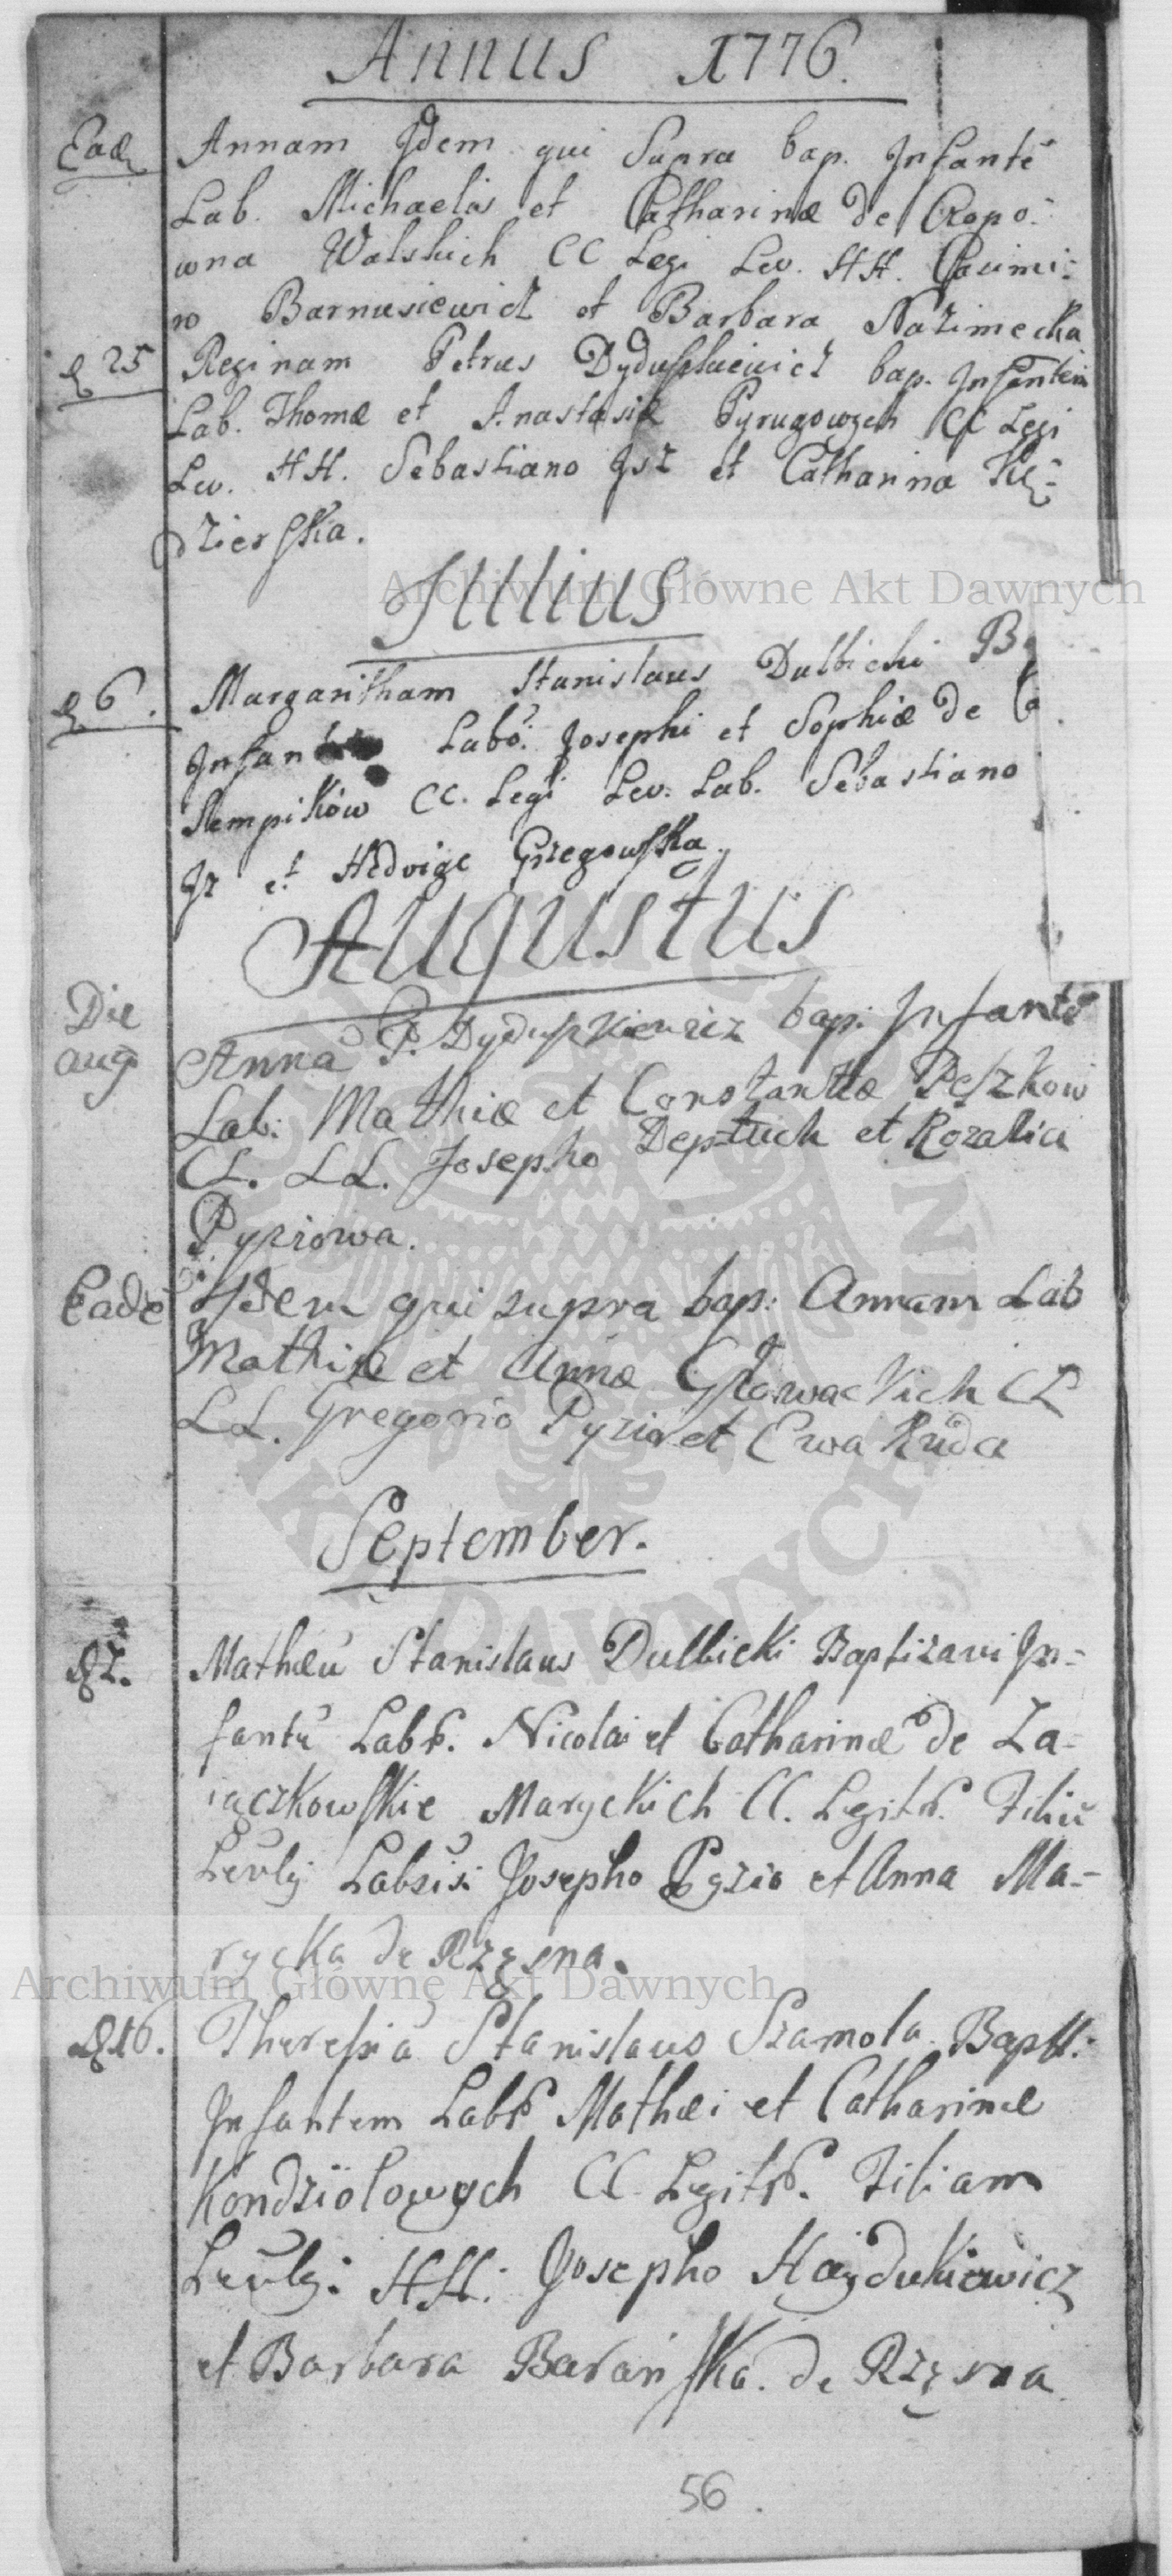 Annus 1776.
Ead. Annam Jdem qui Supra bap. Infantē
Lab. Michaelis et Catharinæ de Cropo-
wna Walskich CC Legi Lev. HH. Casimi-
ro Barnusiewicz et Barbara Nazimecka
d 25 Reginam Petrus Dyduszkiewicz bap. Infantem
Lab. Thomæ et Anastasiæ Pyrugowych CC Legi
Lev. HH. Sebastiano Jsz et Catharina Kę-
dzierska.
Julius
d 6. Margaritham Stanislaus Dulbicki
Infan Labo. Josephi et Sophiæ de
Stempików CC. Legi Lev. Lab. Sebastiano
Jz et Hedvige Grzegowska.
Augustus
Die Anna P. Dyduszkiewicz bap. Infantē
aug Lab. Mathiæ et Constantiæ Peszkow
CL. LL. Josepho Deptuch et Rozalia
Pyziowa.
Eadē Idem qui supra bap: Annam Lab
Mathiæ et Annæ Głowackich CL
LL. Gregorio Pyzio et Ewa Ruda
September.
Mathæū Stanislaus Dulbicki Baptizavi In-
fantē Labr. Nicolai et Catharinæ de Za-
iączkowskie Maryckich CC. Legitr. Filiū
Levby Labsis: Josepho Pyzio et Anna Ma-
rycka de Rzęsna.
d 16. Theresiā Stanislaus Szamota Baptt.
Infantem Labr Mathæi et Catharinæ
Kondziolowych CC Legitr. Filiam
Levby: HH: Josepho Haydukiewicz
et Barbara Barańska. de Rzęsna
56.
Archiwum Główne Akt Dawnych
Archiwum Główne Akt Dawnych